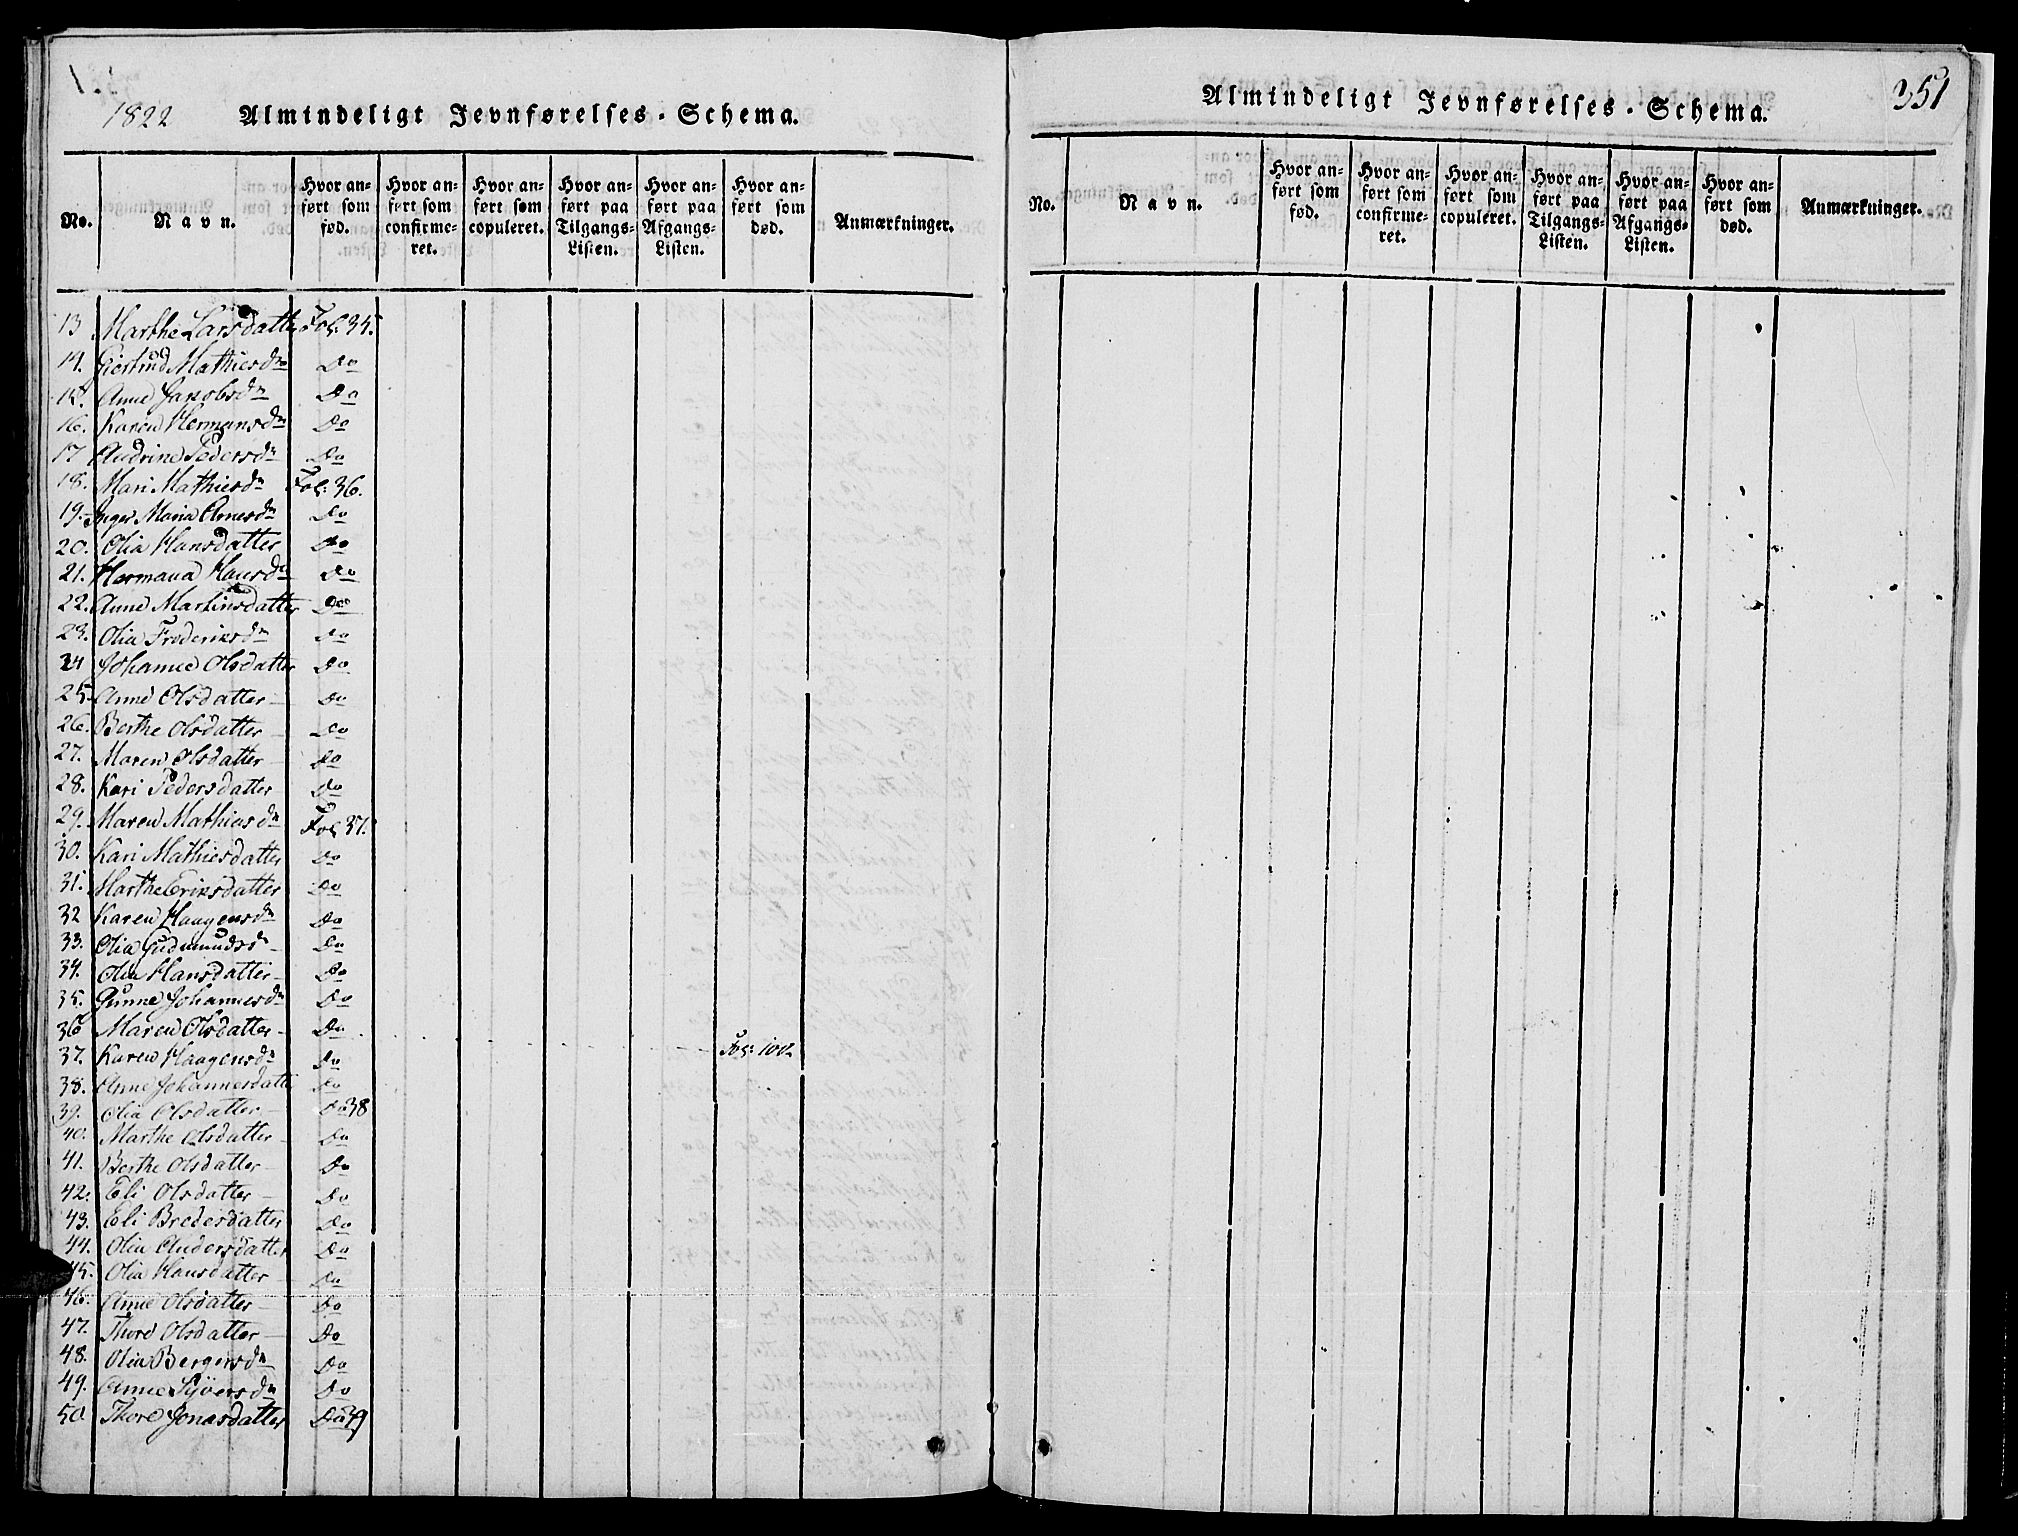 1822 Almindeligt Jevnførelses-Schema.
No. Navn. Hvor anført som fød. Hvor anført som confirmeret. Hvor anført som copuleret. Hvor anført paa Tilgangs-Listen. Hvor anført paa Afgangs-Listen. Hvor anført som død. Anmærkninger.
13 Marthe Larsdatter Fol: 35.
14. Giertrud Mathiesdr Do
15. Anne Jakobsdr Do
16. Karen Hermansdr Do
17 Andrine Pedersdr Do
18. Mari Mathiesdr Fol: 36.
19. Inger Maria Arnesdr Do
20. Olia Hansdatter Do
21. Hermana Hansdr Do
22. Anne Martinsdatter Do
23. Olia Frederiksdr Do
24 Johanne Olsdatter Do
25. Anne Olsdatter Do
26. Berthe Olsdatter Do
27. Maren Olsdatter Do
28. Kari Pedersdatter Do
29. Maren Mathiasdr Fol 37.
30. Kari Mathiesdatter Do
31. Marthe Eriksdatter Do
32 Karen Haagensdr Do
33. Olia Gudmundsdr Do
34. Olia Hansdatter Do
35. Gunne Johannesdr Do
36 Maren Olsdatter Do
37. Karen Haagensdr Do Fol:
38. Anne Johannesdatt Do
39. Olia Olsdatter Do 38
40. Marthe Olsdatter Do
41. Berthe Olsdatter Do
42. Eli Olsdatter Do
43. Eli Bredesdatter Do
44. Olia Andersdatter Do
45. Olia Hansdatter Do
46. Anne Olsdatter Do
47. Thore Olsdatter Do
48. Olia Bergersdr Do
49. Anne Syversdr Do
50 Thore Jonasdatter Do 39
Almindeligt Jevnførelses-Schema. 351
No. Navn. Hvor anført som fød. Hvor anført som confirmeret. Hvor anført som copuleret. Hvor anført paa Tilgangs-Listen. Hvor anført paa Afgangs-Listen. Hvor anført som død. Anmærkninger.